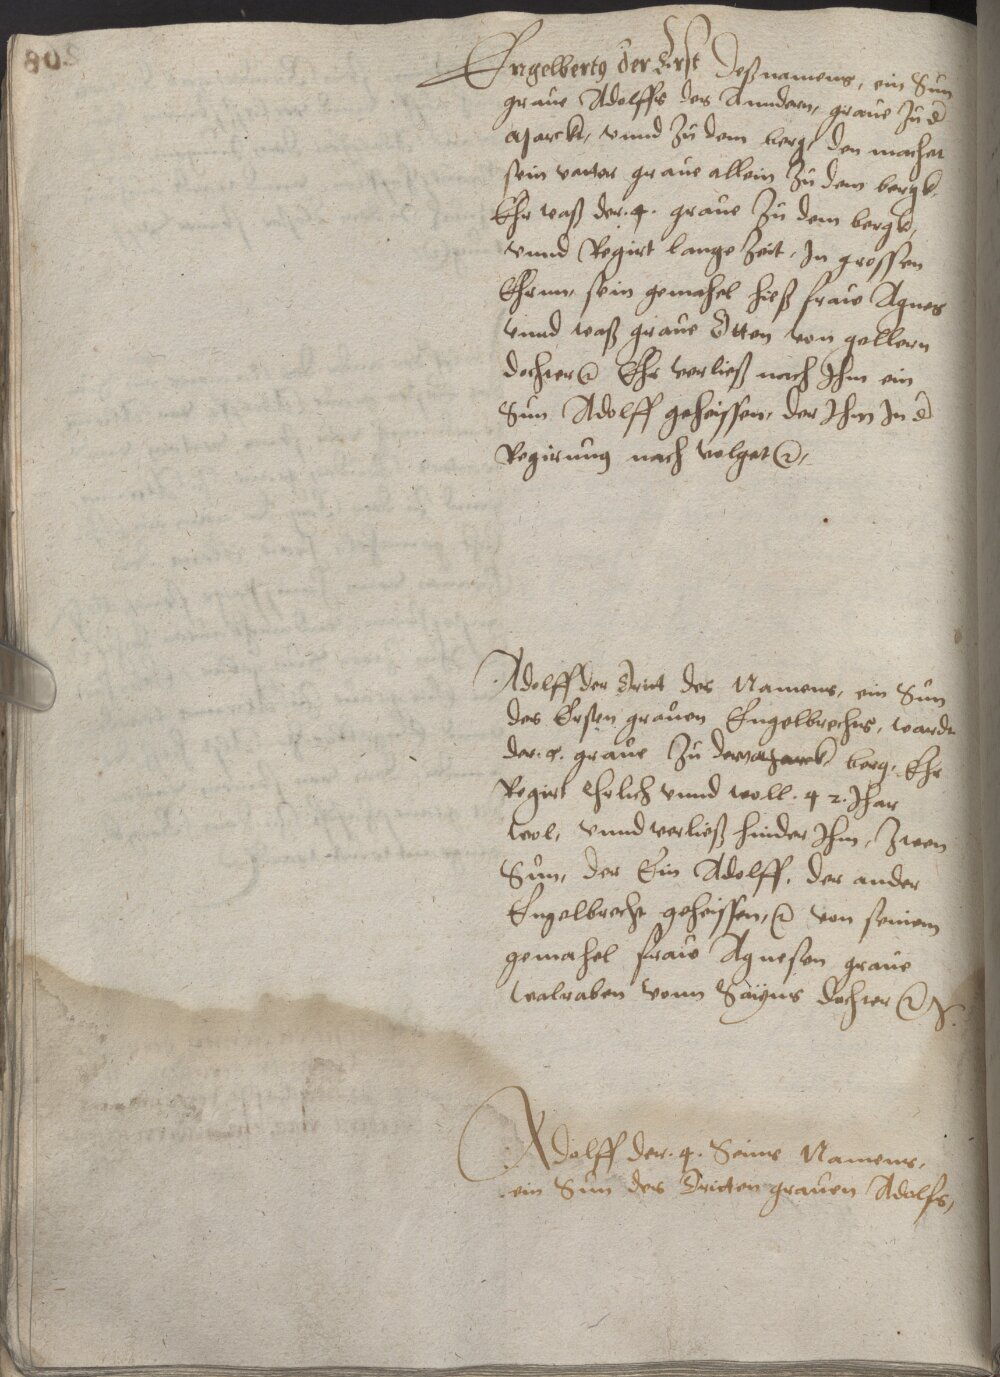 80.
Engelbertus der Erst deß namens, ein Sun
graue Adolffs des Anndern, graue Zu d
Marck, vnnd Zu dem berg, den machet
sein vatter graue allein Zu dem bergk,
Ehr waß der .4. graue Zu dem bergk,
vnnd Regirt lange Zeit, In grossen
Ehrnn, sein gemahel hieß fraw Agnes
vnnd waß graue Otten von gellern
dochter Ehr verließ nach Ihm ein
Sun Adolff geheissen, der Ihm In d
Regirung nach volget
Adolff der Dritt des Namens, ein Sun
des Ersten grauen Engelbrechts, wardt
der .5. graue Zu dem berg, Ehr
Regirt Ehrlich vnnd woll .42. Ihar
wol, vnnd verließ hinder Ihm, Zwen
Sün, der Ein Adolff, der ander
Engelbrecht geheissen, von seinem
gemahel fraw Agnesen graue
walraben vonn Sayns dochter
Adolff der .4. Seins Namens,
ein Sun des Dritten grauen Adolfs,